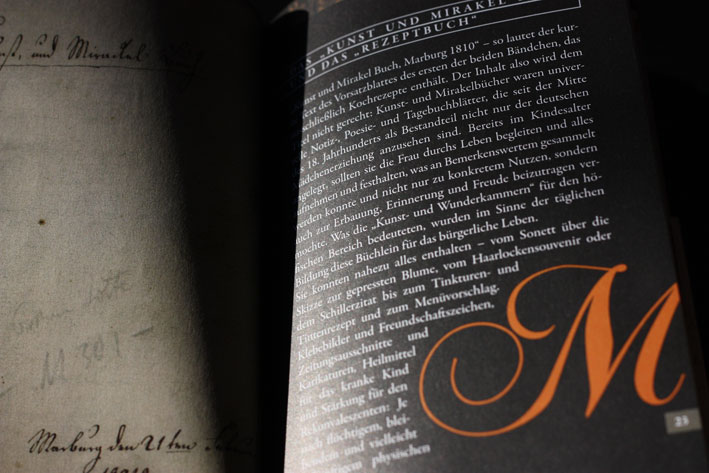 und Mirakel
Marburg den 21ten
„KUNST UND MIRAKEL
DAS „REZEPTBUCH“
und Mirakel Buch, Marburg 1810“ – so lautet der kur-
des Vorsatzblattes des ersten der beiden Bändchen, das
schließlich Kochrezepte enthält. Der Inhalt also wird dem
nicht gerecht: Kunst- und Mirakelbücher waren univer-
Notiz-, Poesie- und Tagebuchblätter, die seit der Mitte
18. Jahrhunderts als Bestandteil nicht nur der deutschen
ädchenerziehung anzusehen sind. Bereits im Kindesalter
ngelegt, sollten sie die Frau durchs Leben begleiten und alles
ufnehmen und festhalten, was an Bemerkenswertem gesammelt
erden konnte und nicht nur zu konkretem Nutzen, sondern
auch zur Erbauung, Erinnerung und Freude beizutragen ver-
mochte. Was die „Kunst- und Wunderkammern“ für den hö-
fischen Bereich bedeuteten, wurden im Sinne der täglichen
Bildung diese Büchlein für das bürgerliche Leben.
Sie konnten nahezu alles enthalten – vom Sonett über die
Skizze zur gepressten Blume, vom Haarlockensouvenir oder
dem Schillerzitat bis zum Tinkturen- und
Tintenrezept und zum Menüvorschlag.
Klebebilder und Freundschaftszeichen,
Zeitungsausschnitte und
Karikaturen, Heilmittel
für das kranke Kind
und Stärkung für den
Rekonvaleszenten: Je
nach flüchtigem, blei-
und vielleicht
physischen
M
23